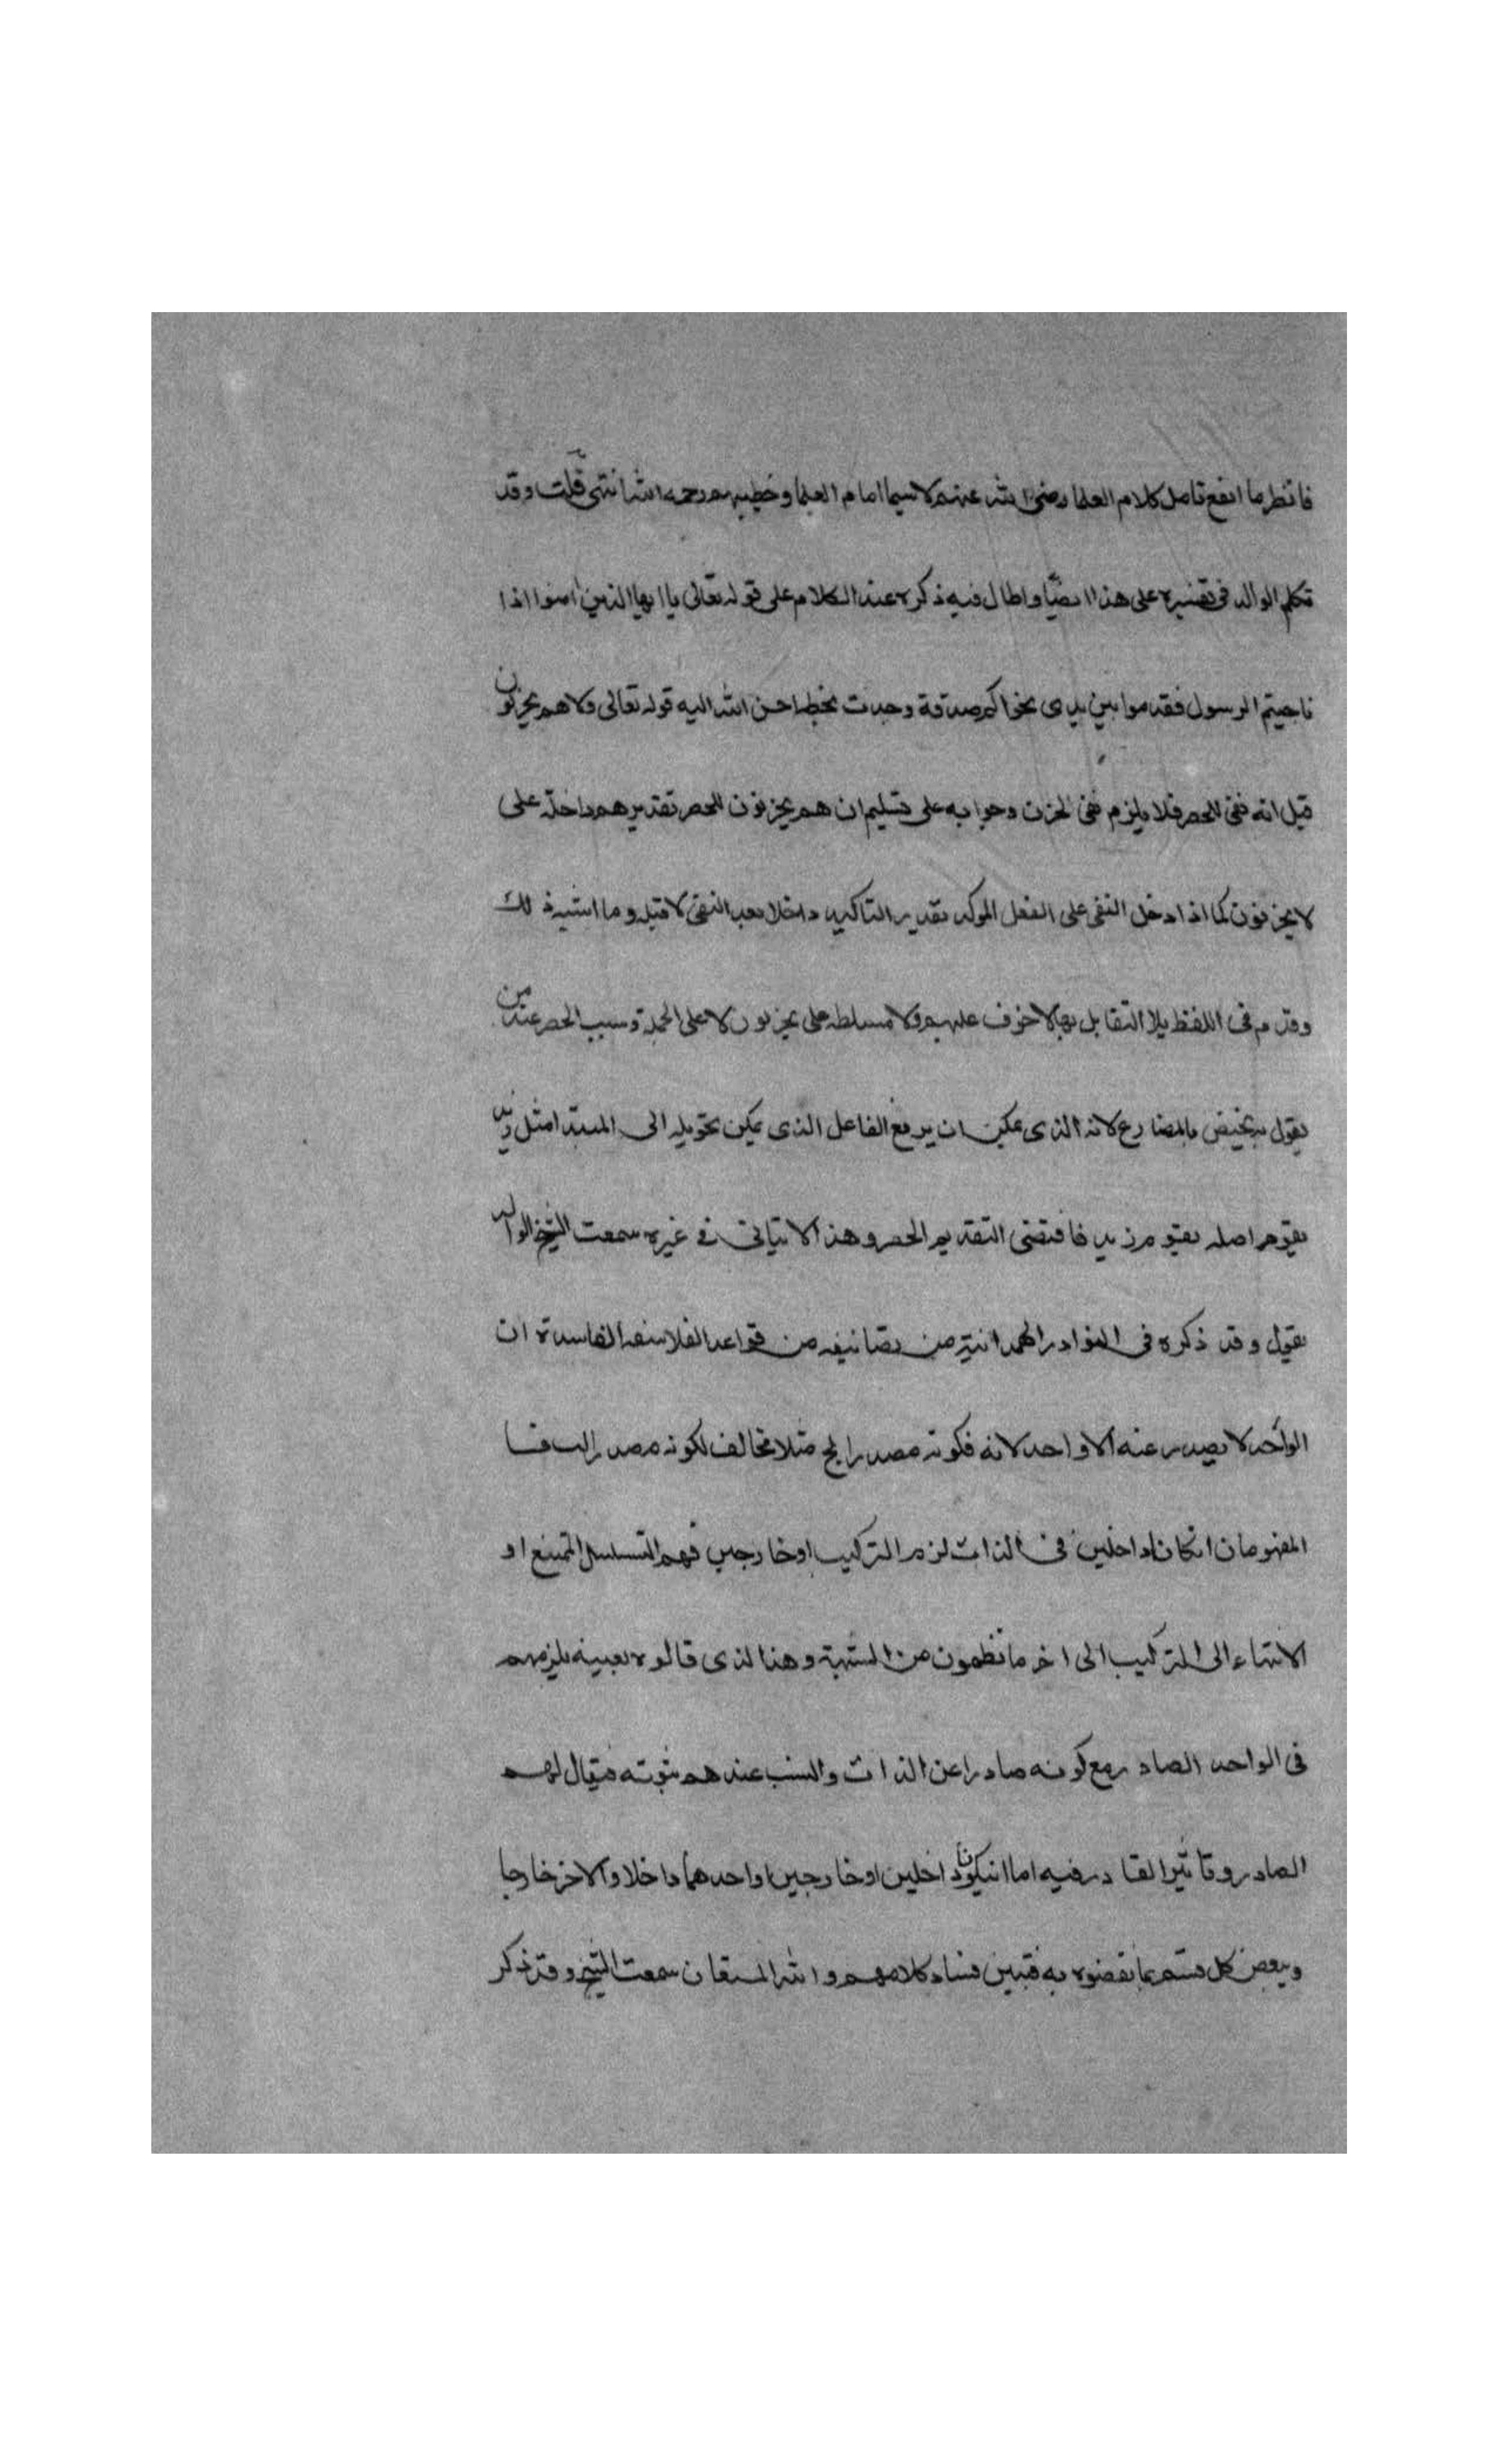 فانظر ما انفع تامل كلام العلما رضى الله عنهم لا سيما امام العلما وخطيبهم رحمه الله انتهى قلت وقد
تكلم الوالد فى تفسيره على هذا ايضا واطال فيه ذكره عند الكلام على قوله تعالى يا ايها الذين امنوا اذا
ناجيتم الرسول فقدموا بين يدى نجواكم صدقة وجدت بخط احسن الله اليه قوله تعالى ولا هم يحزنون
قيل انه نفى للحصر فلا يلزم نفى الحزن وجوابه على تسليم ان هم يحزنون للحصر تقديرهم داخلة على
لا يحزنون كما اذا دخل النفى على الفعل الموكد يقدر التاكيد داخلا بعد النفى لا قبله وما اشبه ذلك
وقدم فى اللفظ بلا التقابل بها لا خوف عليهم ولا مسلطه على يحزنون لا على الجملة وسبب الحصر عند من
يقول به يختص بالمضارع لانه الذى يمكن ان يرفع الفاعل الذى يمكن تحويله الى المبتدا مثل زيد
يقوم اصله يقوم زيد فاقتضى التقديم الحصر وهذا لا يتاتى فى غيره سمعت الشيخ الوالد
يقول وقد ذكره فى النوادر الهمدانية من تصانيفه من قواعد الفلاسفه الفاسدة ان
الواحد لا يصدر عنه الا واحد لانه فكونه مصدرا لج مثلا مخالف لكونه مصدرا لب فا
المفهومان ان كانا داخلين فى الذات لزم التركيب او خارجين فهم التسلسل الممتنع او
الانتهاء الى التركيب الى اخر ما نظمون من الشبهة وهذا لذى قالوه بعينه يلزمهم
فى الواحد الصادر مع كونه صادرا عن الذات والنسب عندهم ثبوته فيقال لهم
الصادر وتاثير القادر فيه اما ان يكونا داخلين او خارجين او احدهما داخلا والاخر خارجا
وينقض كل قسم بما نقضوه به فتبين فساد كلامهم والله المستعان سمعت الشيخ وقد ذكر